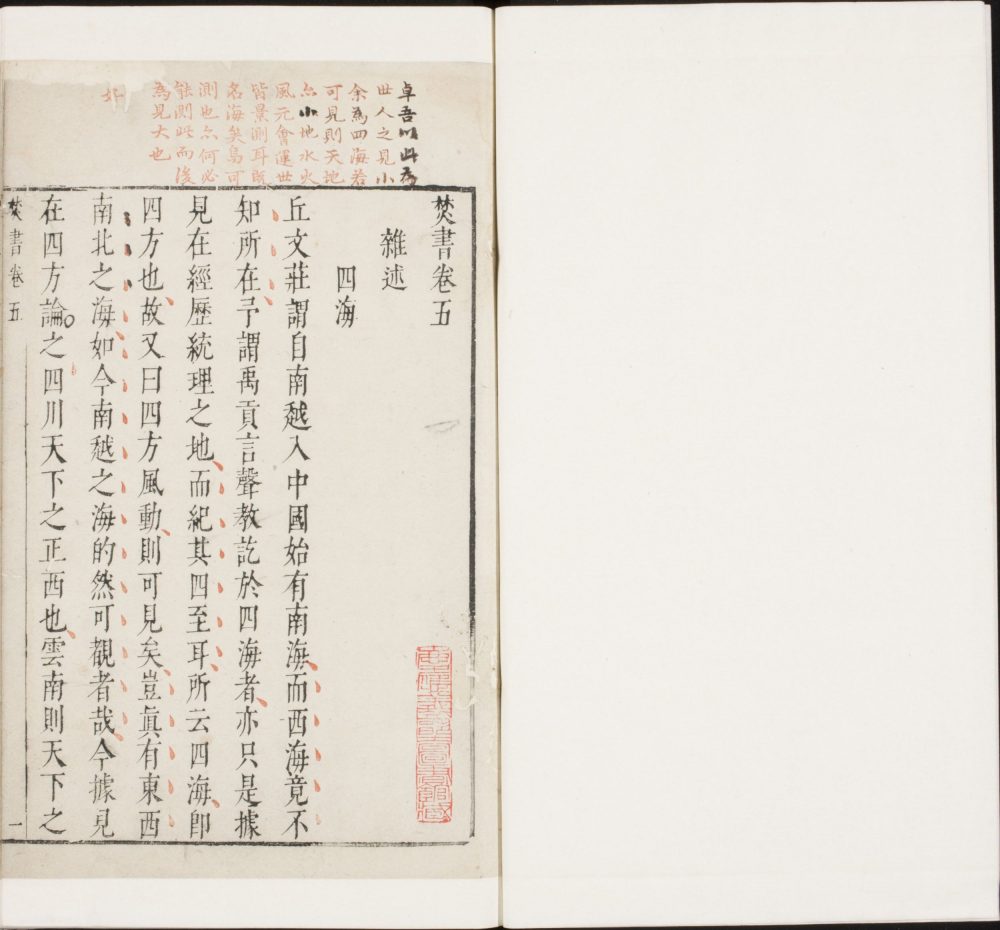 卓吾以此為
世人之見小
余為四海若
可見則天地
亦小地水火
風元會運世
皆景測耳既
名海矣烏可
測也亦何必
能測此而後
為見大也
好
焚書卷五
雜述
四海
丘文莊謂自南越入中國始有南海而西海竟不
知所在予謂禹貢言聲教訖於四海者亦只是據
見在經歷統理之地而紀其四至耳所云四海即
四方也故又曰四方風動則可見矣豈眞有東西
南北之海如今南越之海的然可觀者哉今據見
在四方論之四川天下之正西也雲南則天下之
焚書卷五
一